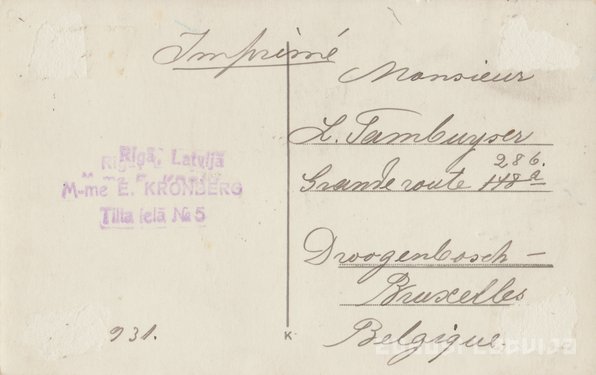 Imprimé
Monsieur
L. Tambuyser
286.
Grande route 148a
Droogenbosch –
Bruxelles
Belgique.
Rīgā, Latvijā
M-me E. KRONBERG
Tilta ielā № 5
931.
K